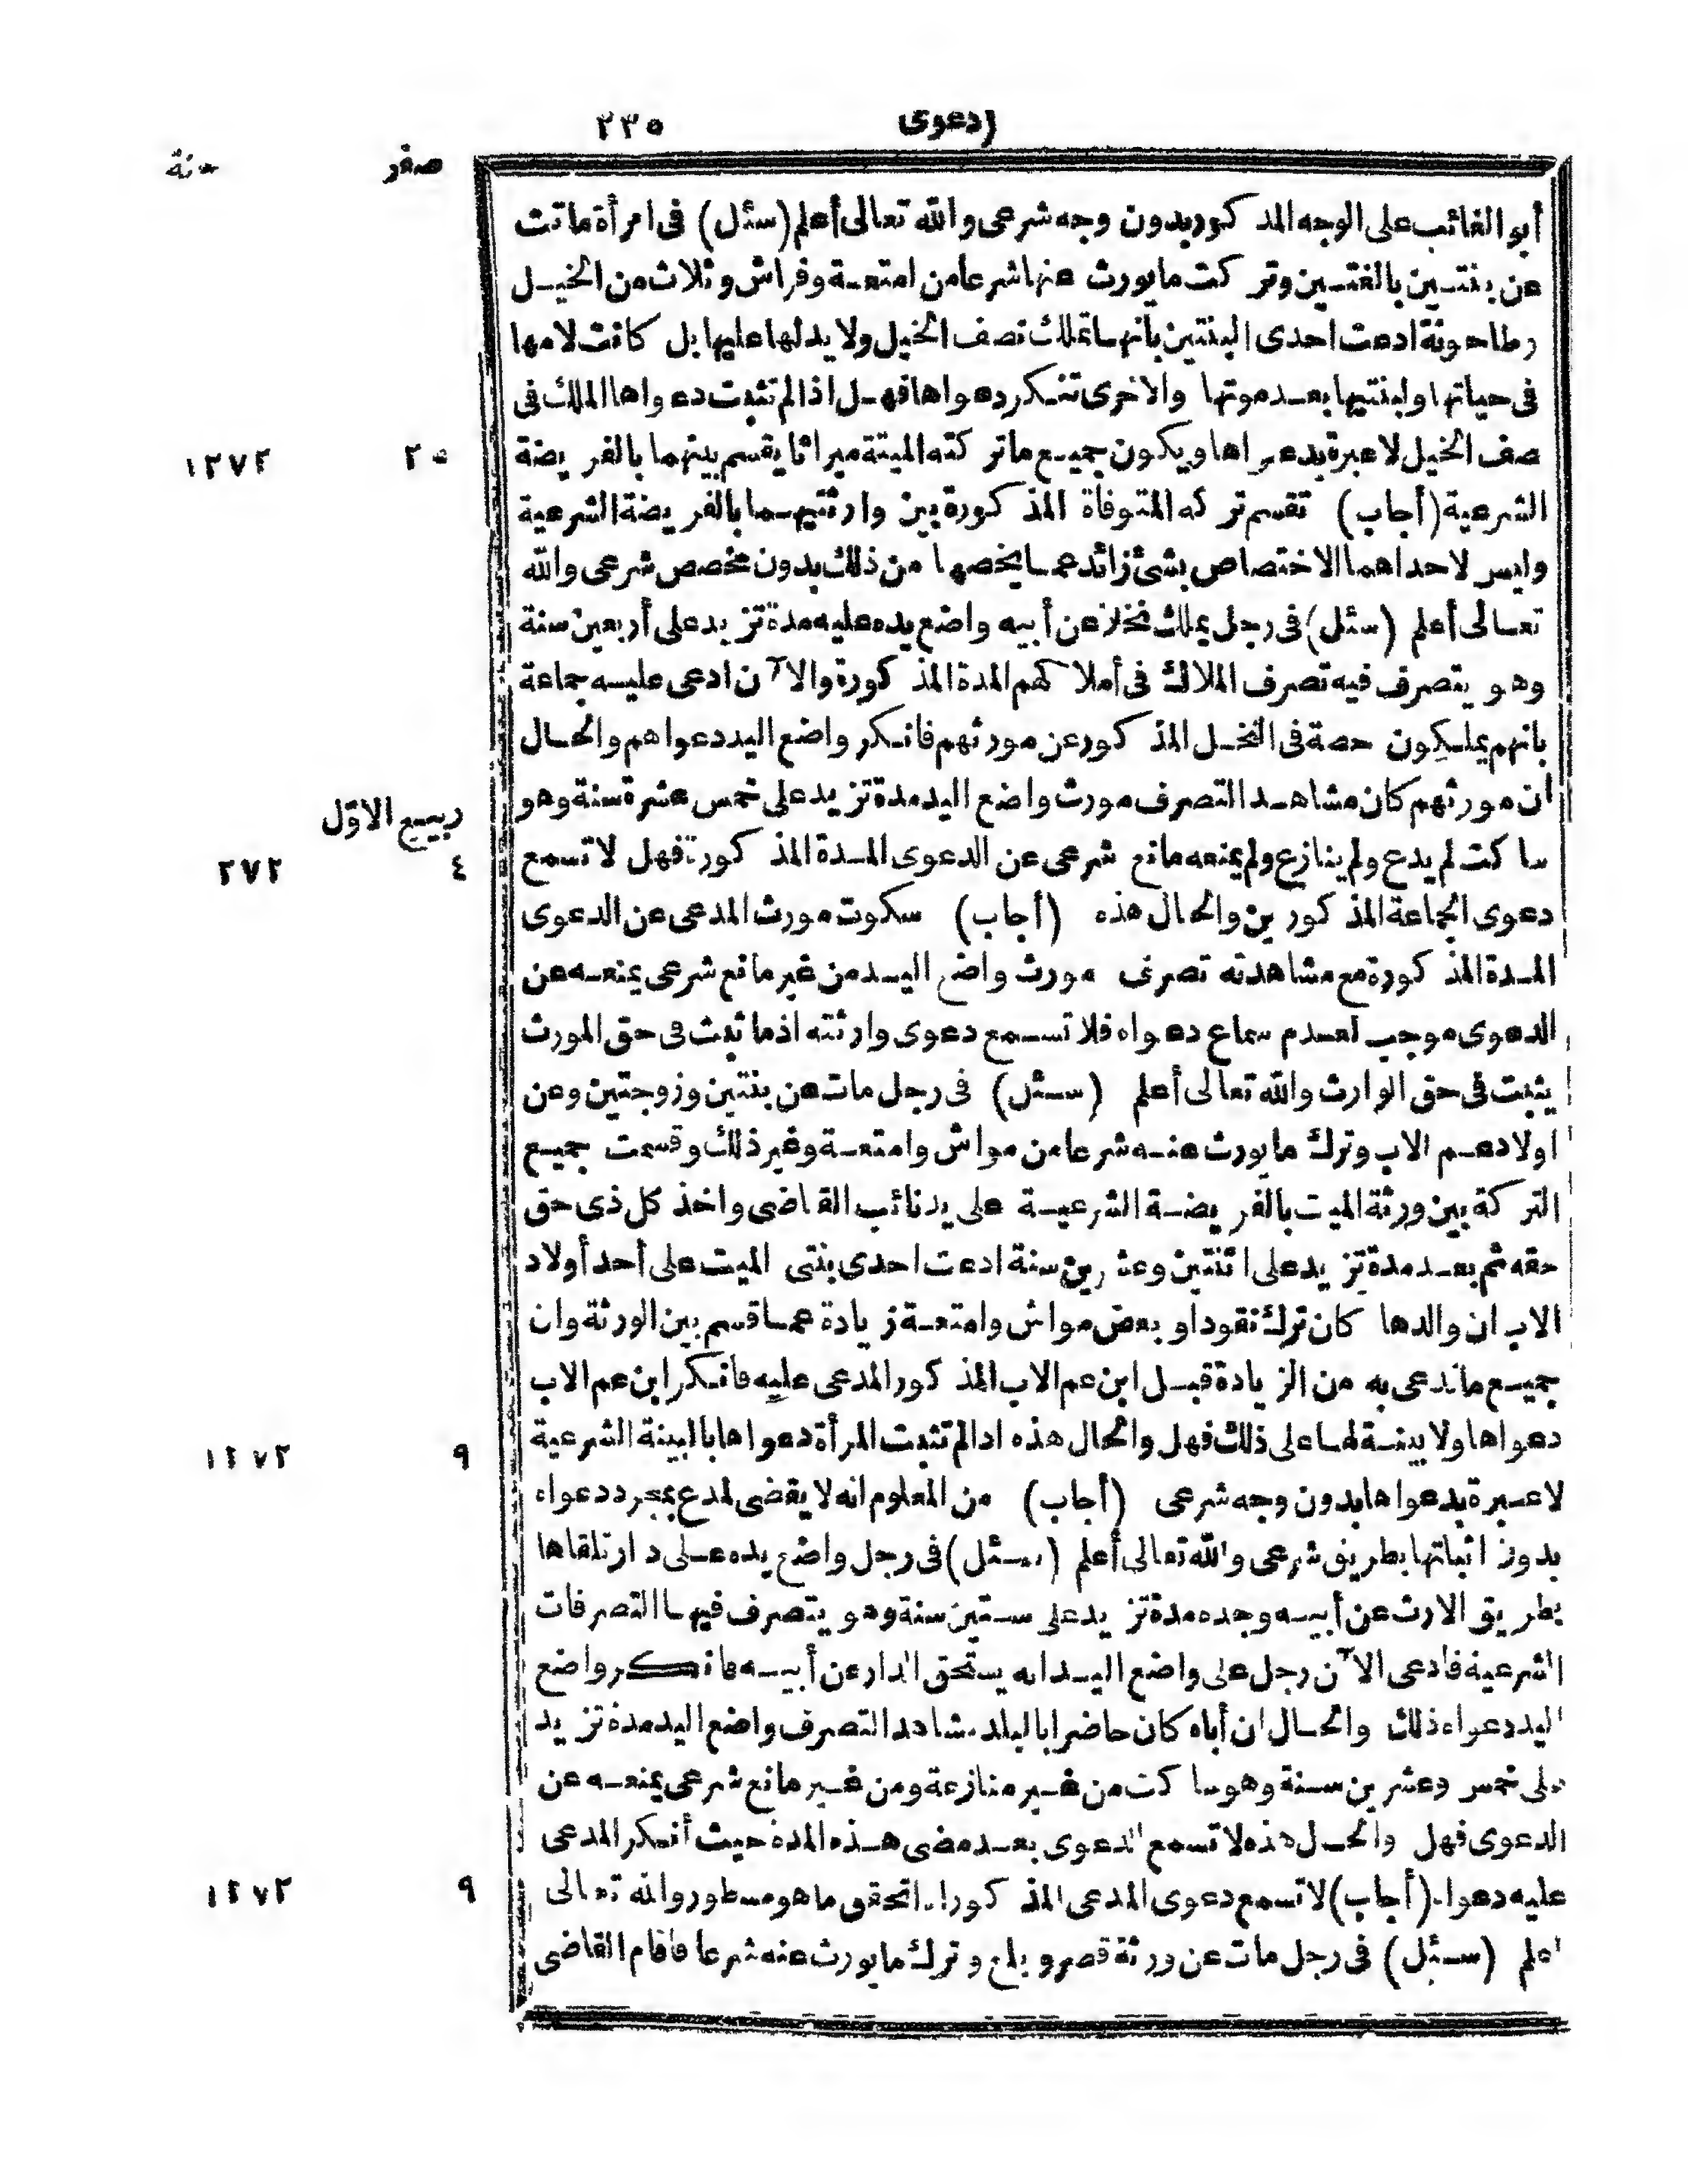 (دعوى ٢٣٥
صفر سنة
أبو الغائب على الوجه المذكور بدون وجه شرعى والله تعالى أعلم (سئل) فى امرأة ماتت
عن بنتين بالغتين وتركت ما يورث عنها شرعا من امتعة وفراش وثلاث من الخيل
وطاحونة ادعت احدى البنتين بأنها تملك نصف الخيل ولا يد لها عليها بل كانت لامها
فى حياتها ولبنتيها بعد موتها والاخرى تنكر دعواها فهل اذا لم تثبت دعواها الملك فى
صف الخيل لا عبرة بدعواها ويكون جميع ما تركته الميتة ميراثا يقسم بينهما بالفريضة ٢٥ ١٢٧٢
الشرعية (أجاب) تقسم تركه المتوفاة المذكورة بين وارثتيهما بالفريضة الشرعية
وليس لاحداهما الاختصاص بشئ زائد عما يخصها من ذلك بدون مخصص شرعى والله
تعالى أعلم (سئل) فى رجل يملك نخلا عن أبيه واضع يده عليه مدة تزيد على أربعين سنة
وهو يتصرف فيه تصرف الملاك فى أملاكهم المدة المذكورة والآن ادعى عليه جماعة
بانهم يملكون حصة فى النخل المذكور عن مورثهم فانكر واضع اليد دعواهم والحال
أن مورثهم كان مشاهد التصرف مورث واضع اليد مدة تزيد على خمس عشرة سنة وهو
ربيع الاوّل
ساكت لم يدع ولم ينازع ولم يمنعه مانع شرعى عن الدعوى المدة المذكورة فهل لا تسمع ٤ ٢٧٢
دعوى الجماعة المذكورين والحال هذه (أجاب) سكوت مورث المدعى عن الدعوى
المدة المذكورة مع مشاهدته تصرف مورث واضع اليد من غير مانع شرعى يمنعه عن
الدعوى موجب لعدم سماع دعواه فلا تسمع دعوى وارثته اذ ما ثبت فى حق المورث
يثبت فى حق الوارث والله تعالى أعلم (سئل) فى رجل مات عن بنتين وزوجتين وعن
اولاد عم الاب وترك ما يورث عنه شرعا من مواش وامتعة وغير ذلك وقسمت جميع
التركة بين ورثة الميت بالفريضة الشرعية على يد نائب القاضى واخذ كل ذى حق
حقه ثم بعد مدة تزيد على اثنتين وعشرين سنة ادعت احدى بنتى الميت على أحد أولاد
الاب ان والدها كان ترك نقودا وبعض مواش وامتعة زيادة عما قسم بين الورثة وان
جميع ما تدعى به من الزيادة قبل ابن عم الاب المذكور المدعى عليه فانكر ابن عم الاب
دعواها ولا بينة لها على ذلك فهل والحال هذه اذا لم تثبت المرأة دعواها بالبينة الشرعية ٩ ١٢٧٢
لا عبرة بدعواها بدون وجه شرعى (أجاب) من المعلوم انه لا يقضى لمدع بمجرد دعواه
بدون اثباتها بطريق شرعى والله تعالى أعلم (سئل) فى رجل واضع يده على دار تلقاها
بطريق الارث عن أبيه وجده مدة تزيد على ستين سنة وهو يتصرف فيها التصرفات
الشرعية فادعى الآن رجل على واضع اليد انه يستحق الدار عن أبيه فانكر واضع
اليد دعواه ذلك والحال ان أباه كان حاضرا بالبلد مشاهد التصرف واضع اليد مدة تزيد
على خمس وعشرين سنة وهو ساكت من غير منازعة ومن غير مانع شرعى يمنعه عن
الدعوى فهل والحال هذه لا تسمع الدعوى بعد مضى هذه المدة حيث أنكر المدعى
عليه دعواه (أجاب) لا تسمع دعوى المدعى المذكور اذا تحقق ما هو مسطور والله تعالى ٩ ١٢٧٢
اعلم (سئل) فى رجل مات عن ورثة قصر وبلغ وترك ما يورث عنه شرعا فاقام القاضى